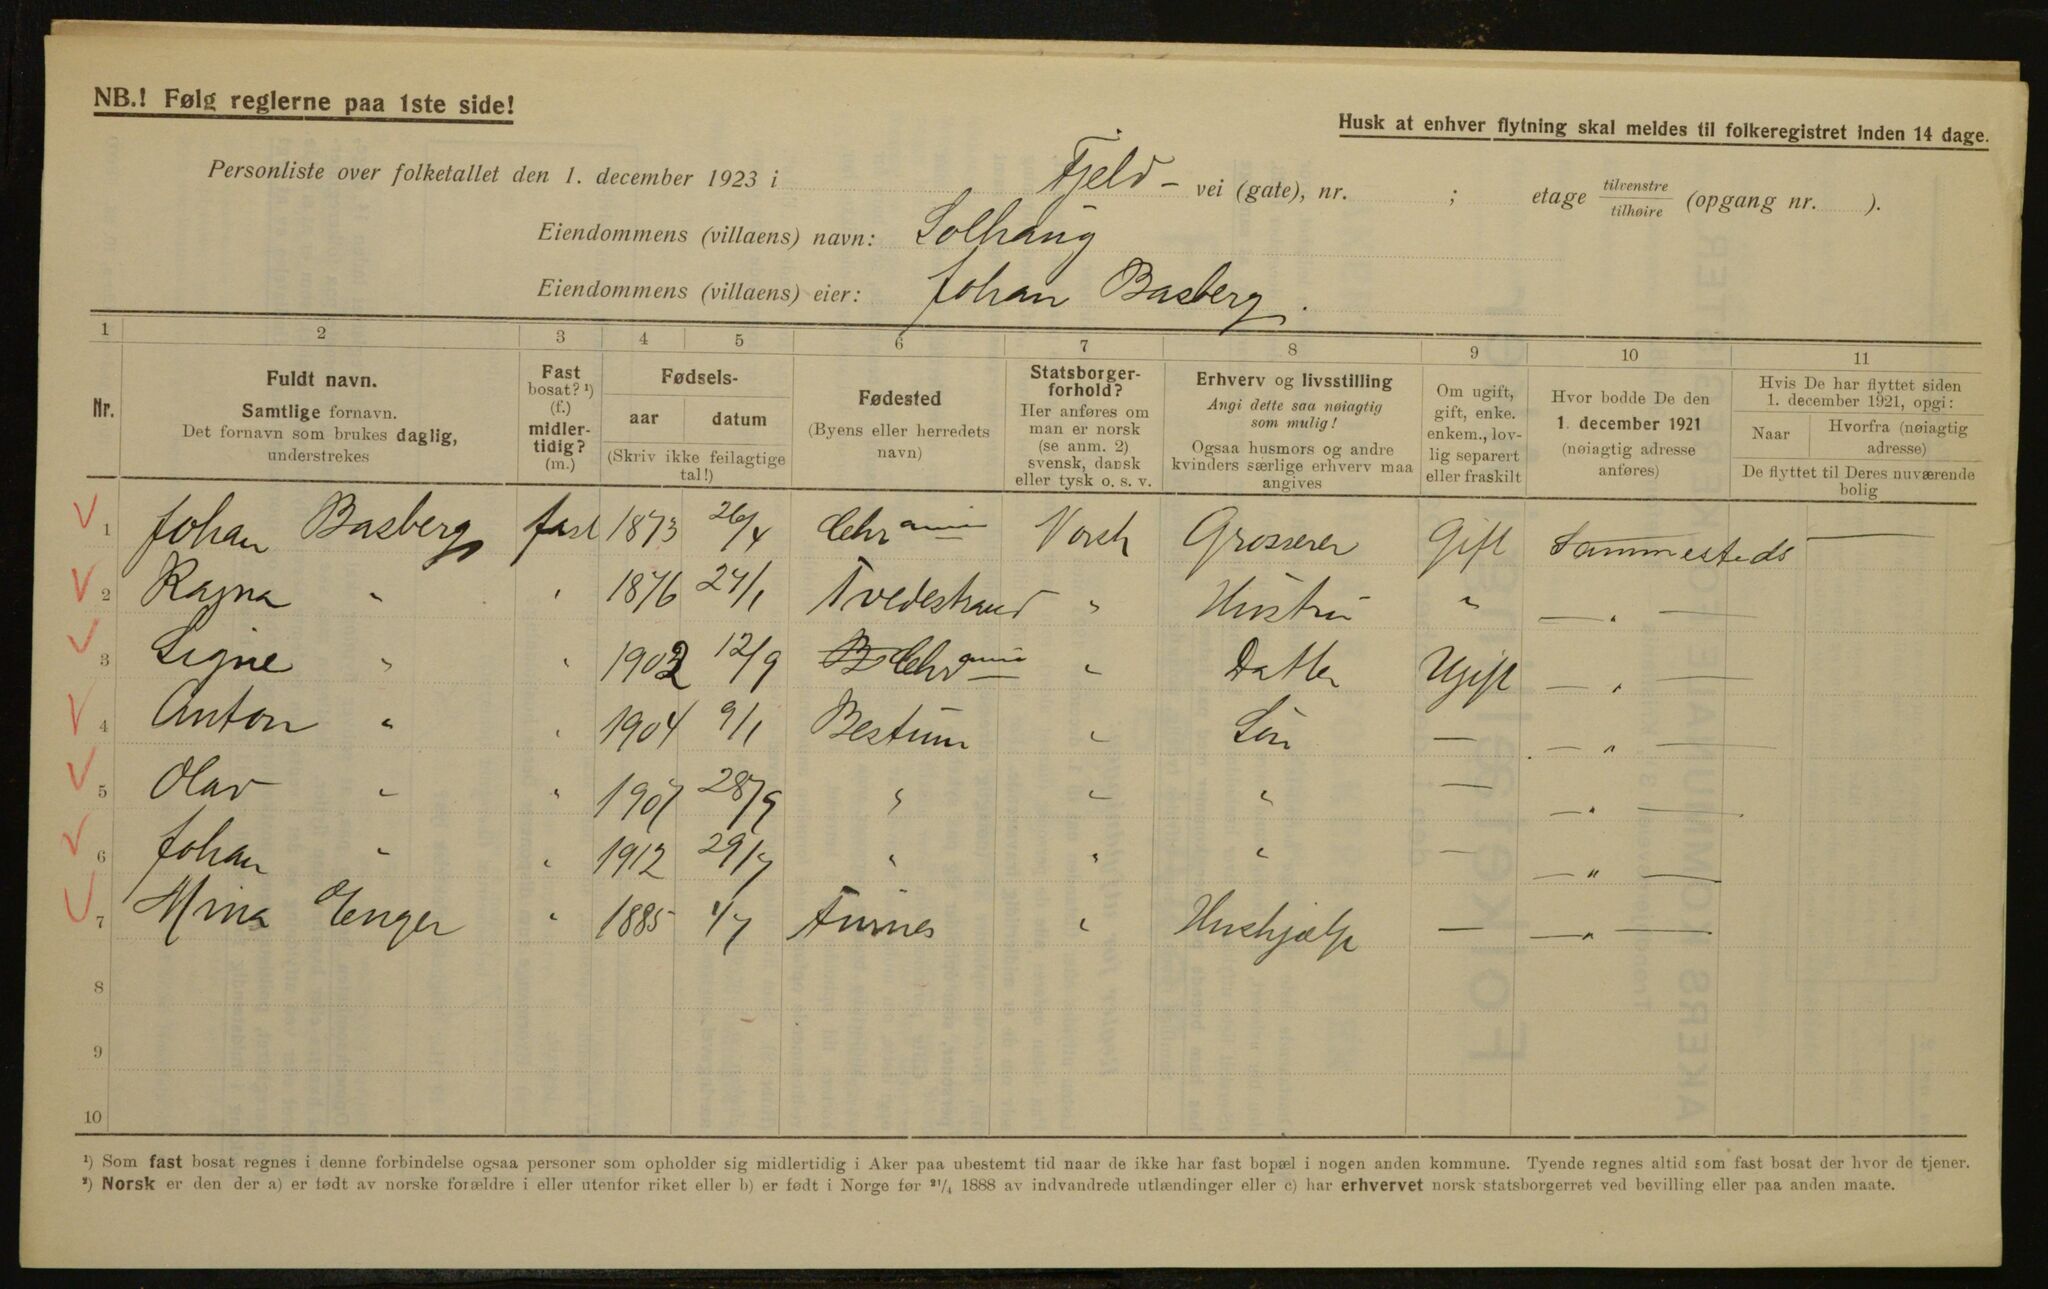 NB.! Følg reglerne paa 1ste side!
Husk at enhver flytning skal meldes til folkeregistret inden 14 dage.
Personliste over folketallet den 1. december 1923 i Fjeld- vei (gate), nr. ; etage tilvenstre/tilhøire (opgang nr. ).
Eiendommens (villaens) navn: Solhaug
Eiendommens (villaens) eier: Johan Basberg.
1 2 3 4 5 6 7 8 9 10 11
Nr.
Fuldt navn.
Samtlige fornavn.
Det fornavn som brukes daglig,
understrekes
Fast
bosat? ¹)
(f.)
midler-
tidig?
(m.)
Fødsels-
aar datum
(Skriv ikke feilagtige
tal!)
Fødested
(Byens eller herredets
navn)
Statsborger-
forhold?
Her anføres om
man er norsk
(se anm. 2)
svensk, dansk
eller tysk o. s. v.
Erhverv og livsstilling
Angi dette saa nøiagtig
som mulig!
Ogsaa husmors og andre
kvinders særlige erhverv maa
angives
Om ugift,
gift, enke.
enkem., lov-
lig separert
eller fraskilt
Hvor bodde De den
1. december 1921
(nøiagtig adresse
anføres)
Hvis De har flyttet siden
1. december 1921, opgi:
Naar Hvorfra (nøiagtig
adresse)
De flyttet til Deres nuværende
bolig
1 Johan Basberg fast 1873 26/4 Chrania Norsk Grosserer Gift Sammesteds —
2 Ragna " " 1876 27/1 Tvedestrand " Hustru " — " —
3 Signe " " 1902 12/9 Chrania " Datter Ugift — " —
4 Anton " " 1904 9/1 Bestum " Søn — — " —
5 Olav " " 1907 28/9 " " " — — " —
6 Johan " " 1912 29/7 " " " — — " —
7 Mina Enger " 1885 1/7 Furnes " Hushjælp — — " —
8
9
10
¹) Som fast bosat regnes i denne forbindelse ogsaa personer som opholder sig midlertidig i Aker paa ubestemt tid naar de ikke har fast bopæl i nogen anden kommune. Tyende regnes altid som fast bosat der hvor de tjener.
²) Norsk er den der a) er født av norske forældre i eller utenfor riket eller b) er født i Norge før 21/4 1888 av indvandrede utlændinger eller c) har erhvervet norsk statsborgerret ved bevilling eller paa anden maate.